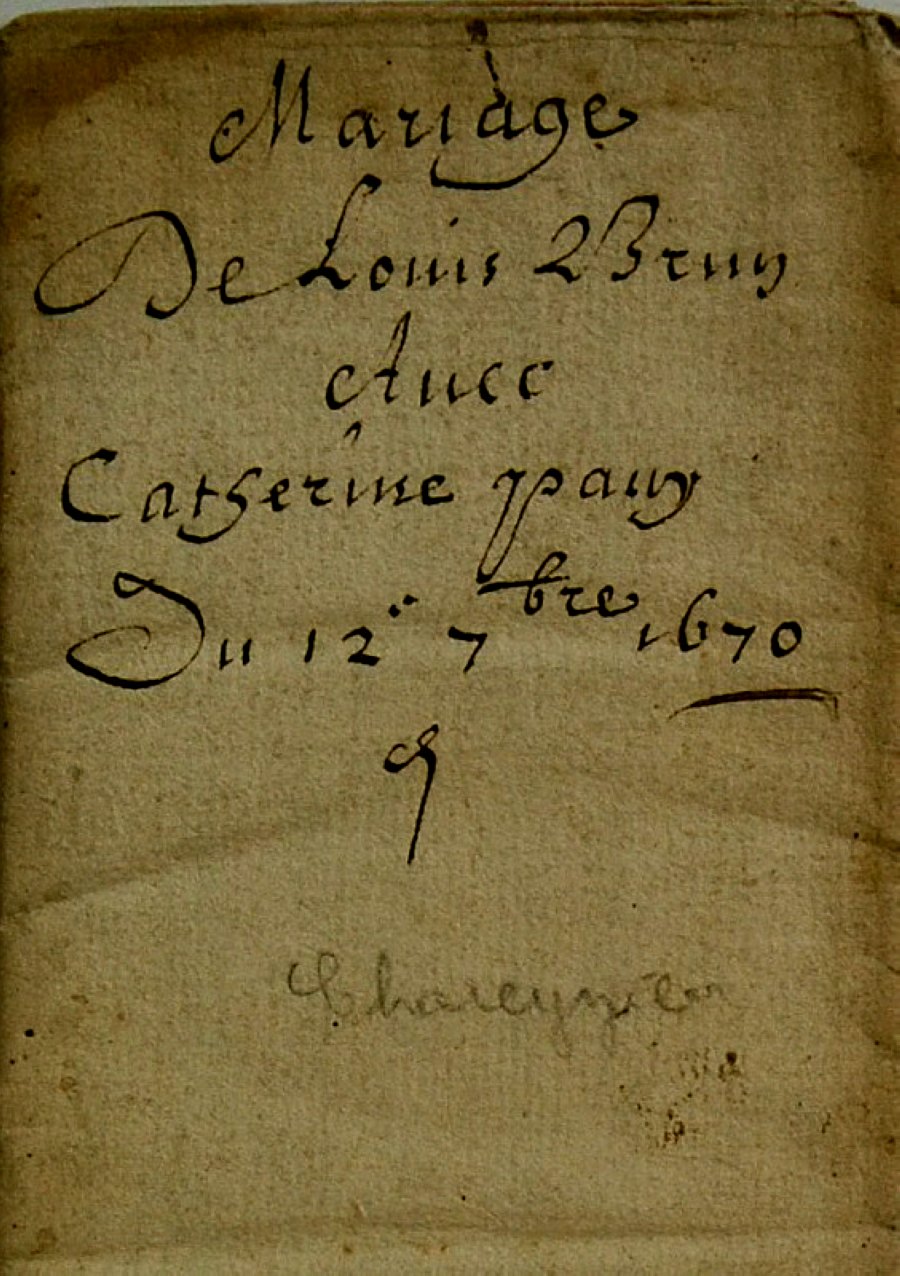 Mariage
De Louis Bruy
Auec
Catherine pauy
Du 12e 7bre 1670